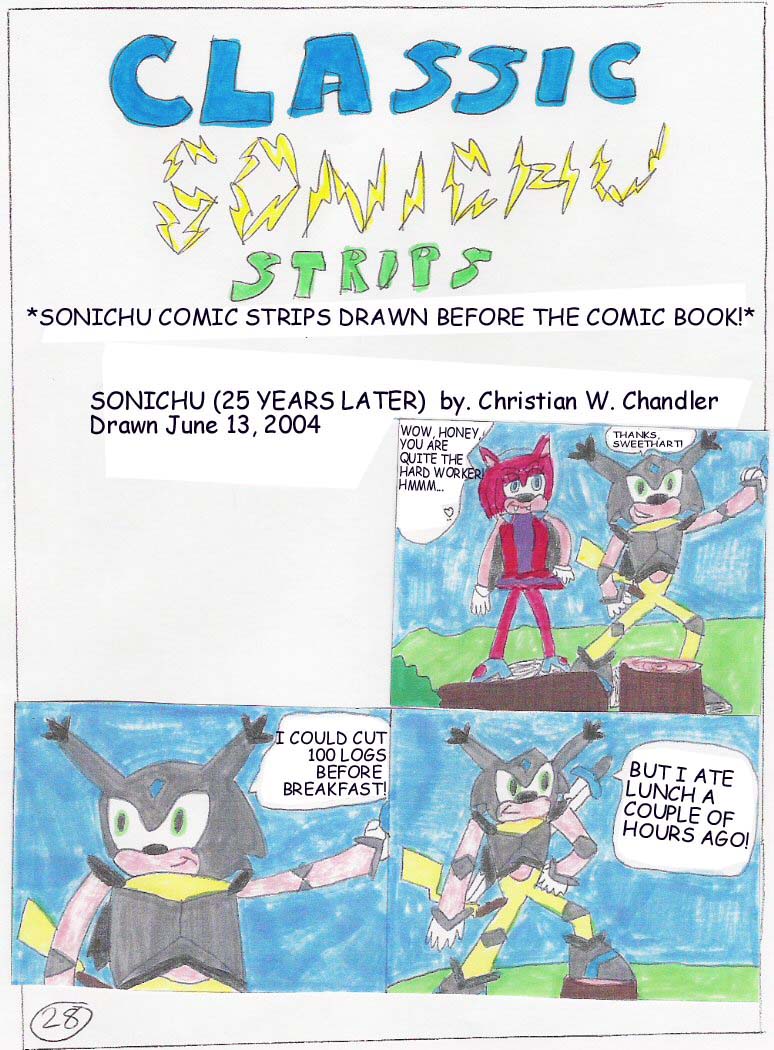 CLASSIC
SONICHU
STRIPS
*SONICHU COMIC STRIPS DRAWN BEFORE THE COMIC BOOK!*
SONICHU (25 YEARS LATER) by. Christian W. Chandler
Drawn June 13, 2004
WOW, HONEY,
YOU ARE
QUITE THE
HARD WORKER!
HMMM...
THANKS,
SWEETHART!
I COULD CUT
100 LOGS
BEFORE
BREAKFAST!
BUT I ATE
LUNCH A
COUPLE OF
HOURS AGO!
28